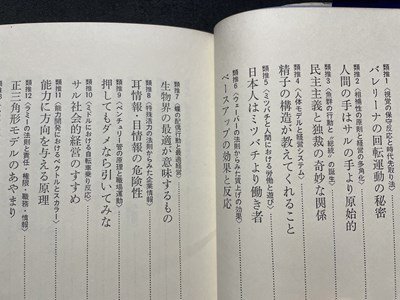 類推1〈視覚の保守反応と時代先取り法〉
バレリーナの回転運動の秘密
類推2〈相補性の原則と経営の多角化〉
人間の手はサルの手より原始的
類推3〈魚群の行動と〝総統〟の誕生〉
民主主義と独裁の奇妙な関係
類推4〈人体モデルと経営システム〉
精子の構造が教えてくれること
類推5〈ミツバチと人間における労働と遊び〉
日本人はミツバチより働き者
類推6〈ウェーバーの法則からみた賃上げの効果〉
ベースアップの効果と反応
類推7〈種の配偶行動と最適経営〉
生物界の最適が意味するもの
類推8〈特殊活力の法則からみた企業情報〉
耳情報・目情報の危険性
類推9〈ベンチュリー管の原理と職場運動〉
押してもダメなら引いてみな
類推10〈ミドルにおける自転車乗り反応〉
サル社会的経営のすすめ
類推11〈能力開発におけるベクトルとスカラー〉
能力に方向を与える原理
類推12〈ラミーの法則と責任・権限・職務・情報〉
正三角形モデルのあやまり